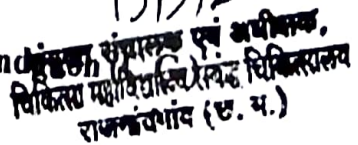 संयुक्त संचालक एवं अधीक्षक,
चिकित्सा महाविद्यालय चिकित्सालय
राजनांदगांव (छ. ग.)